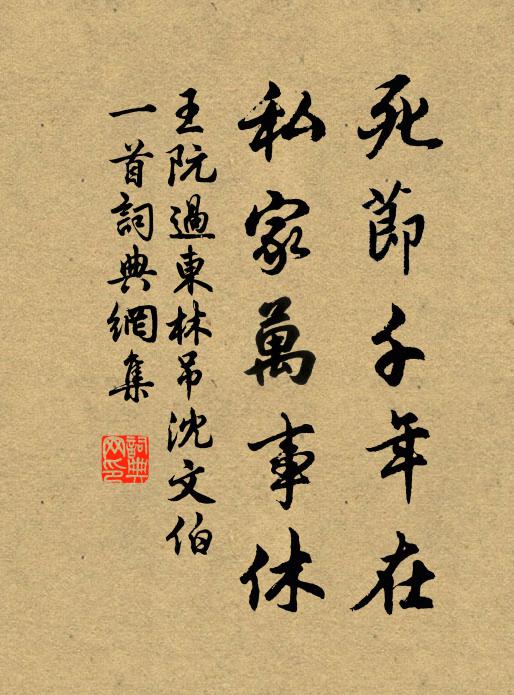 死節千年在
私家萬事休
王阮過東林吊沈文伯
一首詞典網集
詞典网印